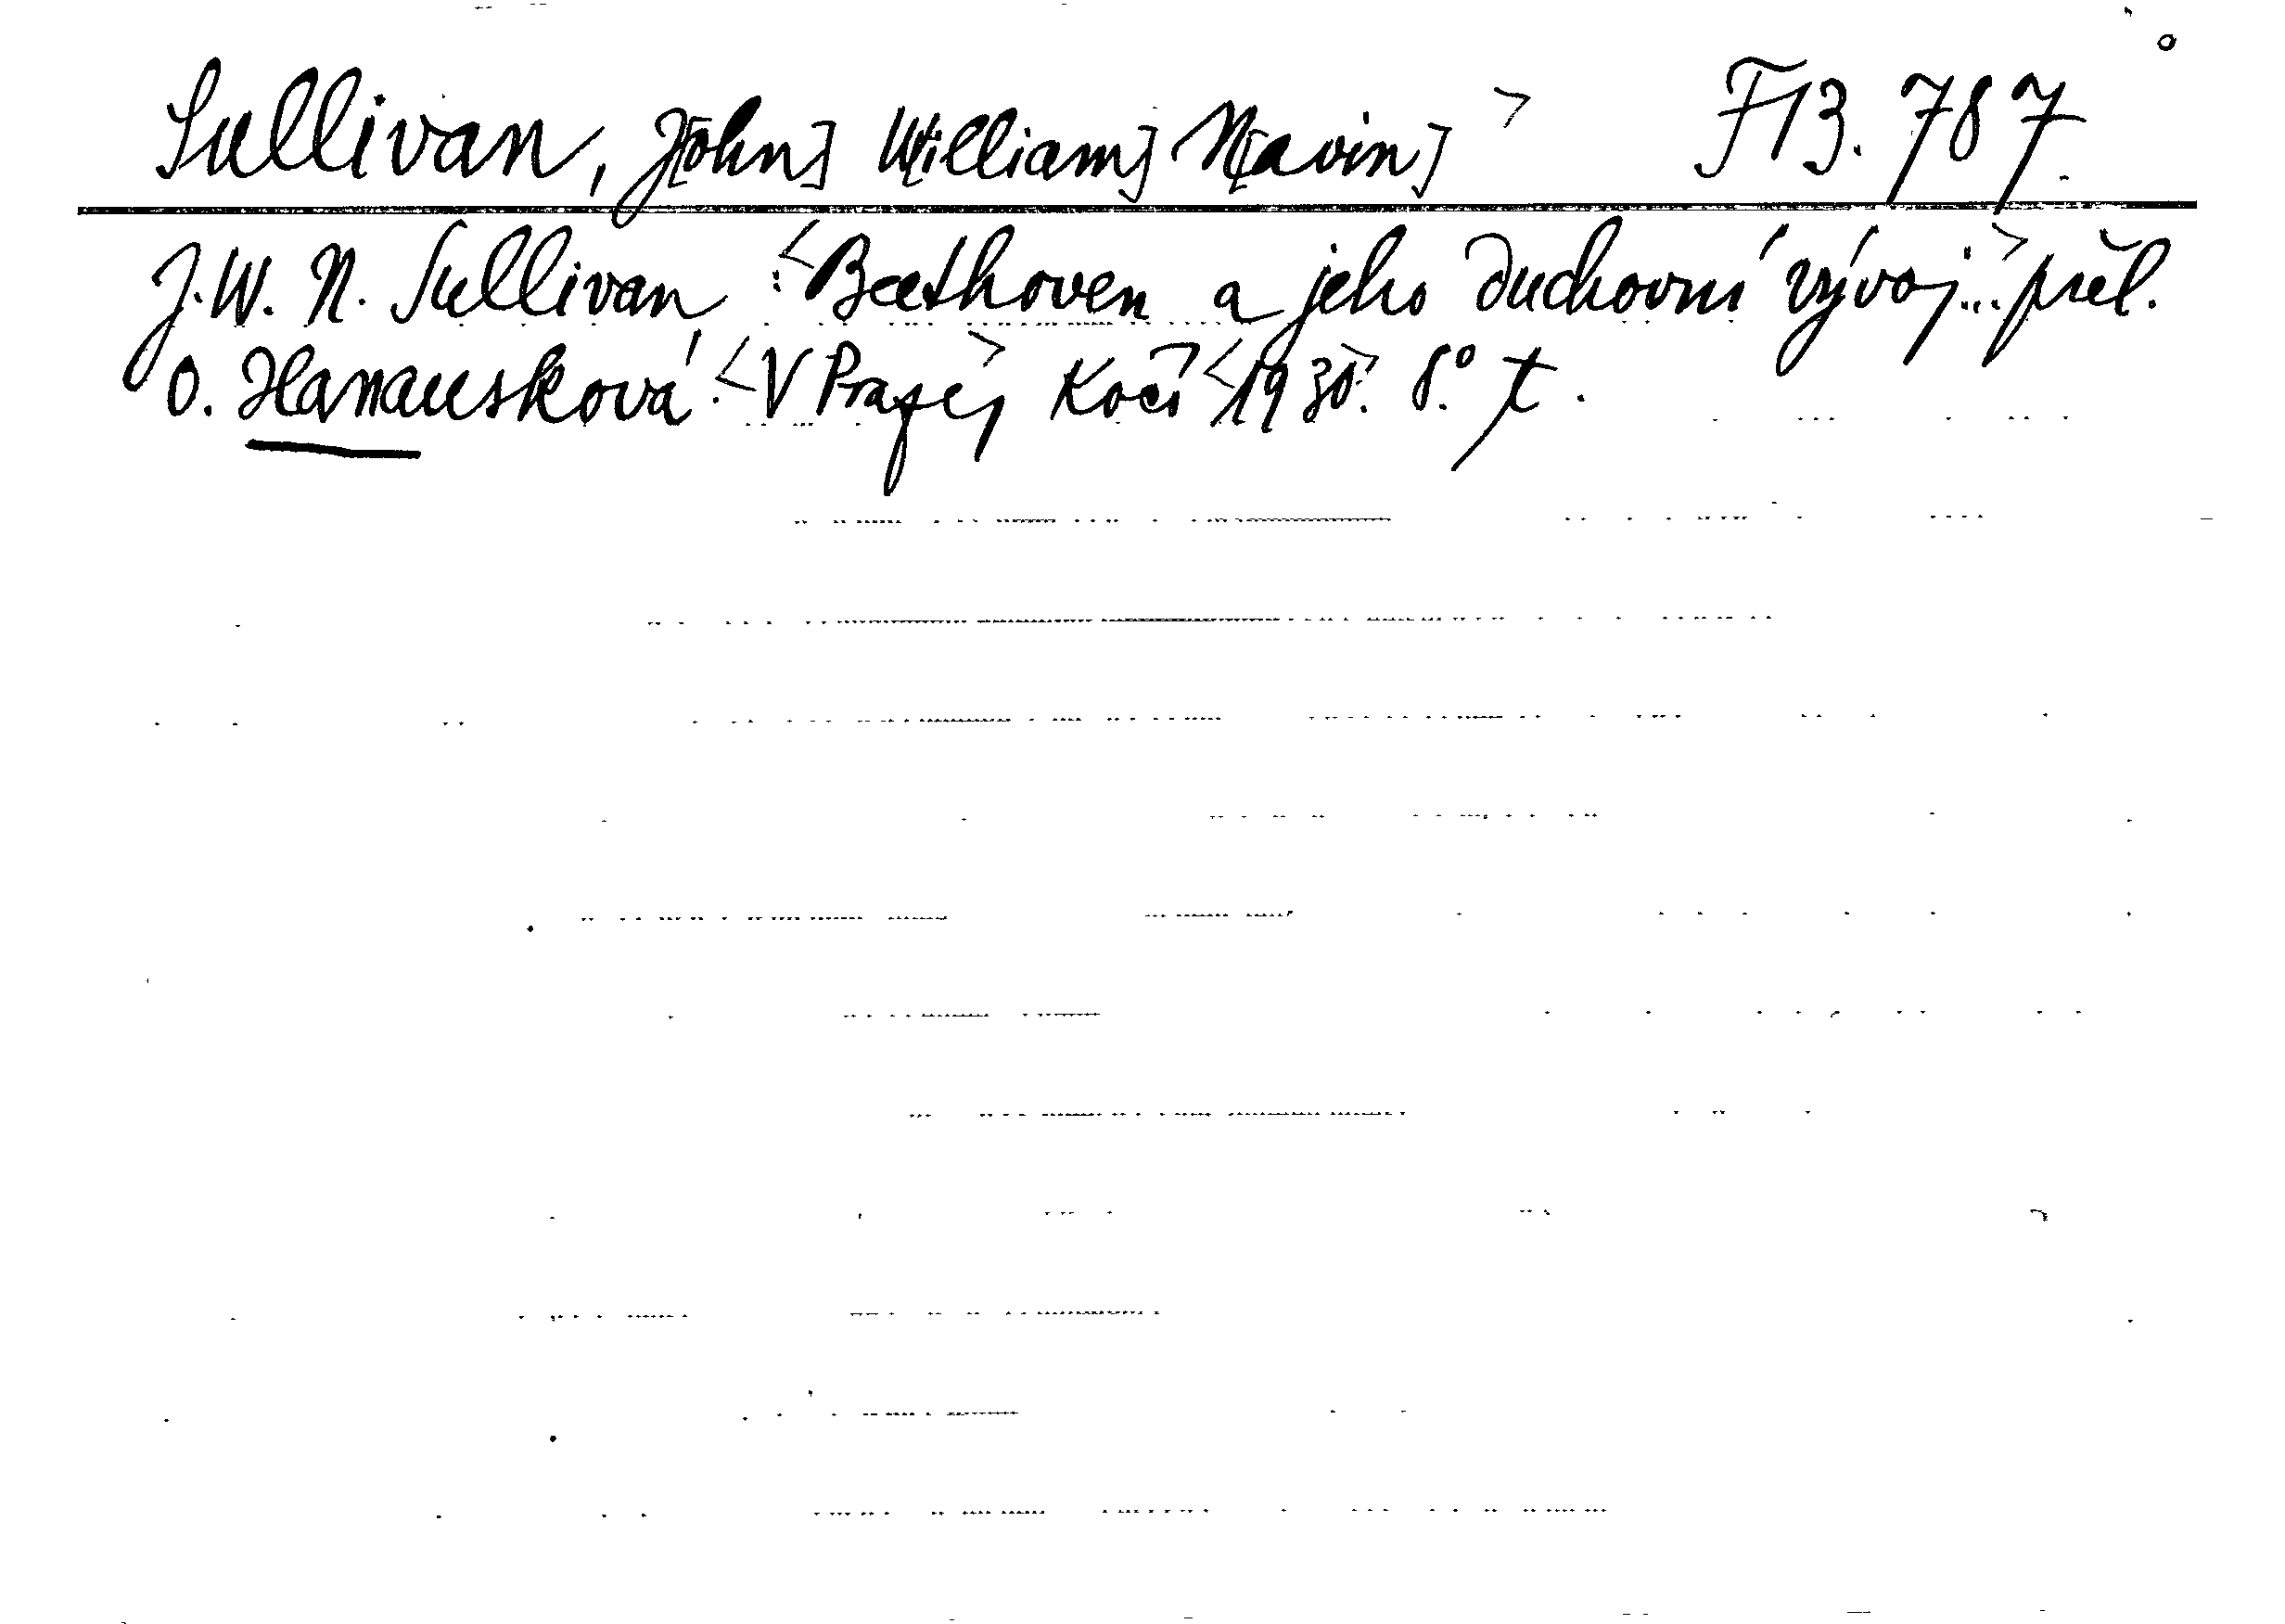 Sullivan, J[ohn] W[illiam] N[avin] > F13.787.
J. W. N. Sullivan : <Beethoven a jeho duchovní vývoj...> přel.
O. Hanausková. <V Praze,> Kočí <1930>. 8.° t.